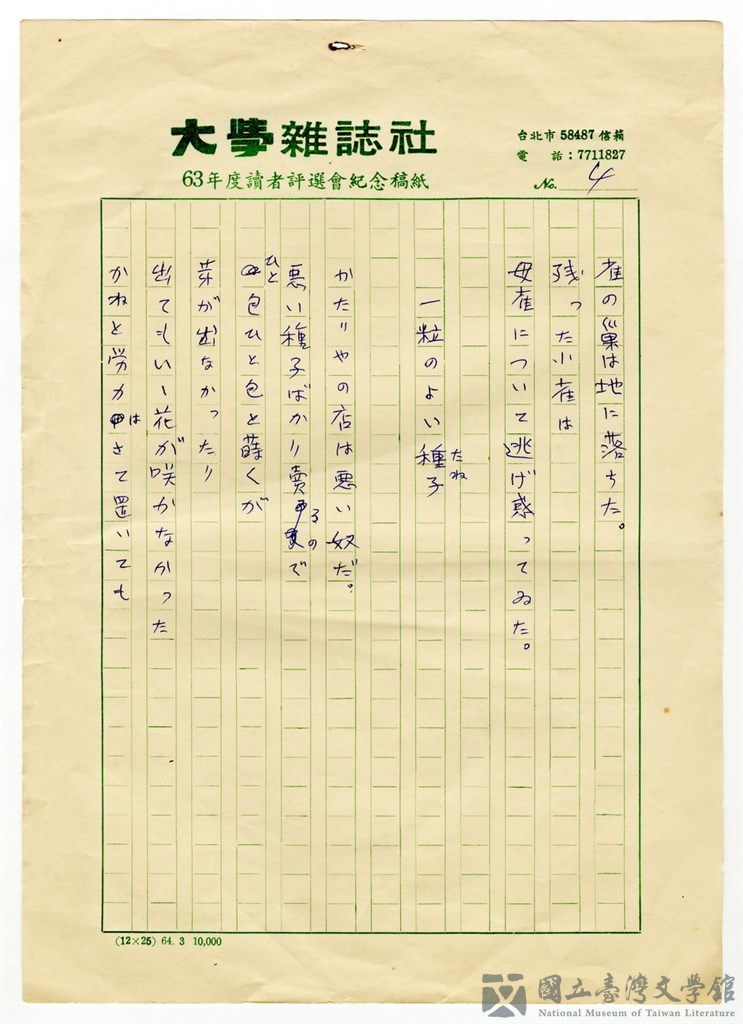 大學雜誌社
63年度讀者評選會紀念稿紙
台北市 58487 信箱
電 話:7711827
No. 4
雀の巣は地に落ちた。
残った小雀は
母雀について逃げ惑ってゐた。
一粒のよい種子
たね
かたりやの店は悪い奴だ。
悪い種子ばかり賣るので
ひと
包ひと包と蒔くが
芽が出なかったり
出てもいゝ花が咲かなかった
かねと労力はさて置いても
(12×25) 64. 3 10,000
國立臺灣文學館
National Museum of Taiwan Literature